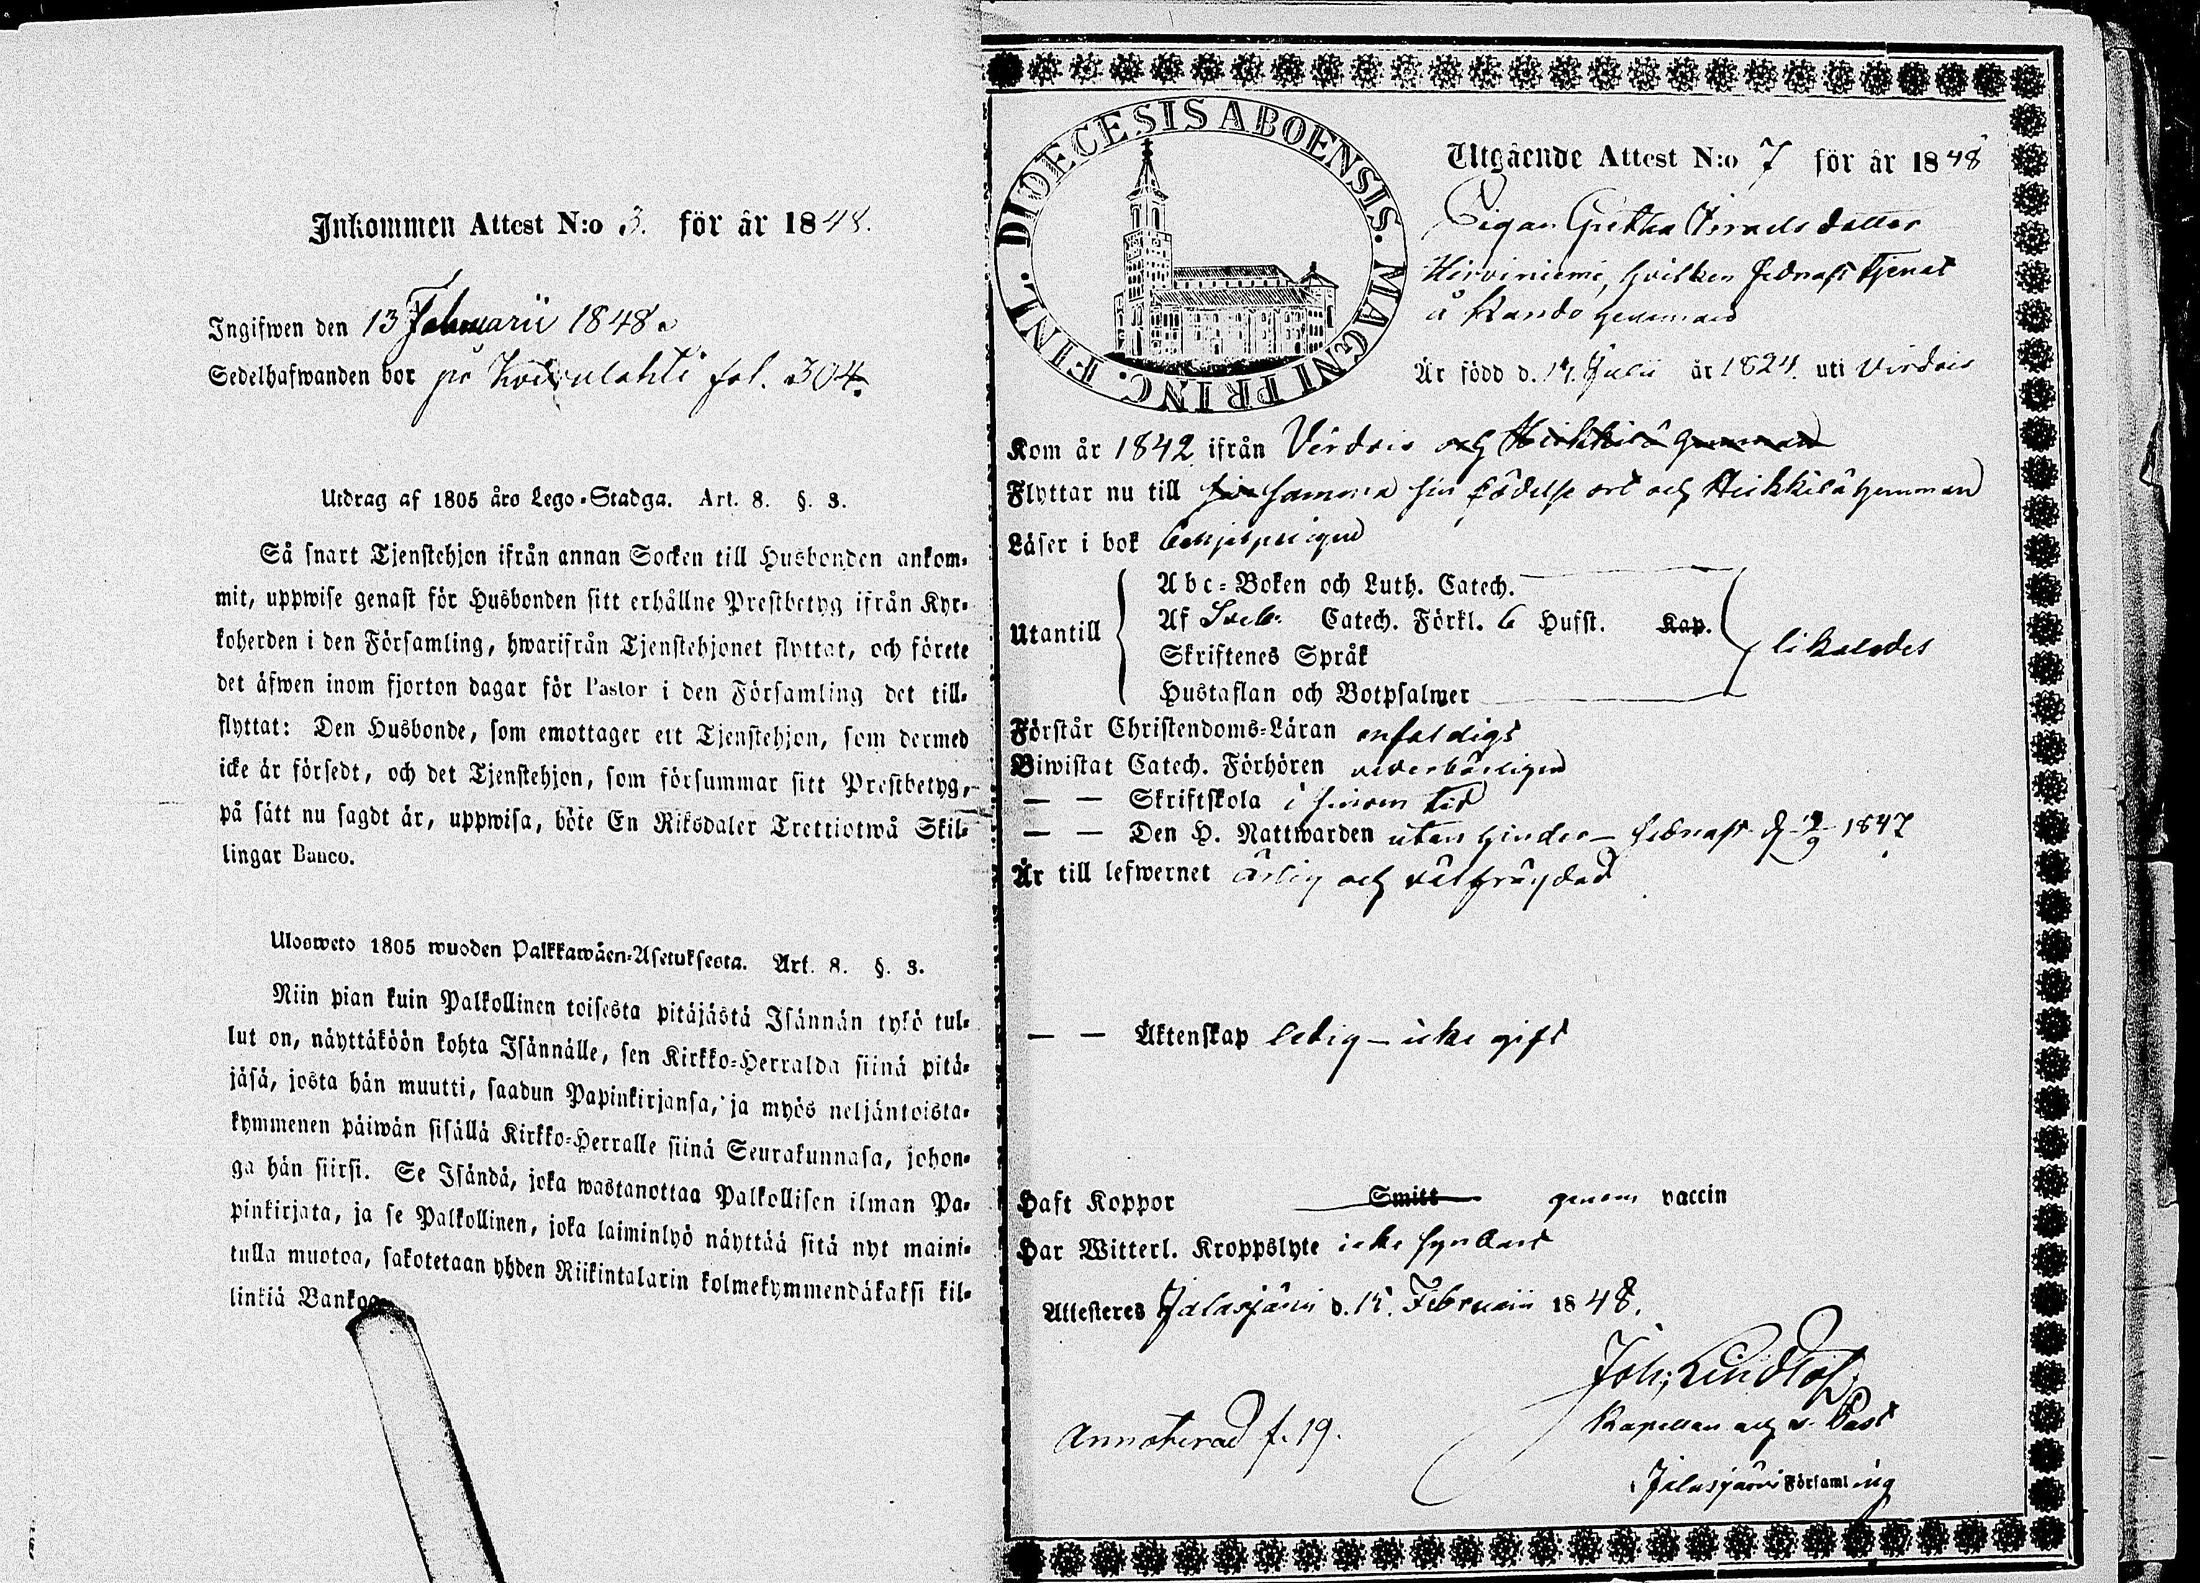 Inkommen Attest N:o 3. för år 1848.
Ingifwen den 13 Februarii 1848.
Sedelhafwanden bor på fol. 304.
Utdrag af 1805 års Lego-Stadga. Art. 8. §. 3.
Så snart Tjenstehjon ifrån annan Socken till Husbonden ankom-
mit, uppwise genast för Husbonden sitt erhållne Prestbetyg ifrån Kyr-
koherden i den Församling, hwarifrån Tjenstehjonet flyttat, och förete
det äfwen inom fjorton dagar för Pastor i den Församling det till-
flyttat: Den Husbonde, som emottager ett Tjenstehjon, som dermed
icke är försedt, och det Tjenstehjon, som försummar sitt Prestbetyg,
på sätt nu sagdt är, uppwisa, böte En Riksdaler Trettiotwå Skil-
lingar Banco.
Ulosweto 1805 wuoden Palkkawäen-Asetuksesta. Art. 8. §. 3.
Niin pian kuin Palkollinen toisesta pitäjästä Isännän tykö tul-
lut on, näyttäköön kohta Isännälle, sen Kirkko-Herralda siinä pitä-
jäsä, josta hän muutti, saadun Papinkirjansa, ja myös neljäntoista-
kymmenen päiwän sisällä Kirkko-Herralle siinä Seurakunnasa, johon-
ga hän siirsi. Se Isändä, joka wastanottaa Palkollisen ilman Pa-
pinkirjata, ja se Palkollinen, joka laiminlyö näyttää sitä nyt maini-
tulla muotoa, sakotetaan yhden Riikintalarin kolmekymmendäkaksi kil-
linkiä Bankos
DIOECESIS ABOENSIS. MAGNI PRINC. FINL.
Utgående Attest N:o 7 för år 1848
Pigan Gretha Israelsdotter
Hirviniemi, hvilken sednast tjenat
å Rando hemman
Är född d. 14. Julii år 1824. uti Virdois
Kom år 1842 ifrån Virdois och Heikkilä hemman
Flyttar nu till samma sin födelse ort och Heikkilä hemman
Läser i bok
Utantill
Abc-Boken och Luth. Catech.
Af Sveb. Catech. Förkl. 6 Hufst. Kap.
Skriftenes Språk
Hustaflan och Botpsalmer
likaledes
Förstår Christendoms-Läran enfaldigt
Biwistat Catech. Förhören vederbörligen
— — Skriftskola i sinom tid
— — Den H. Nattwarden utan hinder – sednast d. 1847
Är till lefwernet ärlig och välfrägdad
— — Äktenskap ledig – icke gift
Haft Koppor Smitt genom vaccin
Har Witterl. Kroppslyte icke synbart
Attesteres Jalasjärvi d. 15 Februarii 1848.
Joh: Lindlöf
Kapellan och v. Past
Annoterad f. 19.
i Jalasjärvi Församling